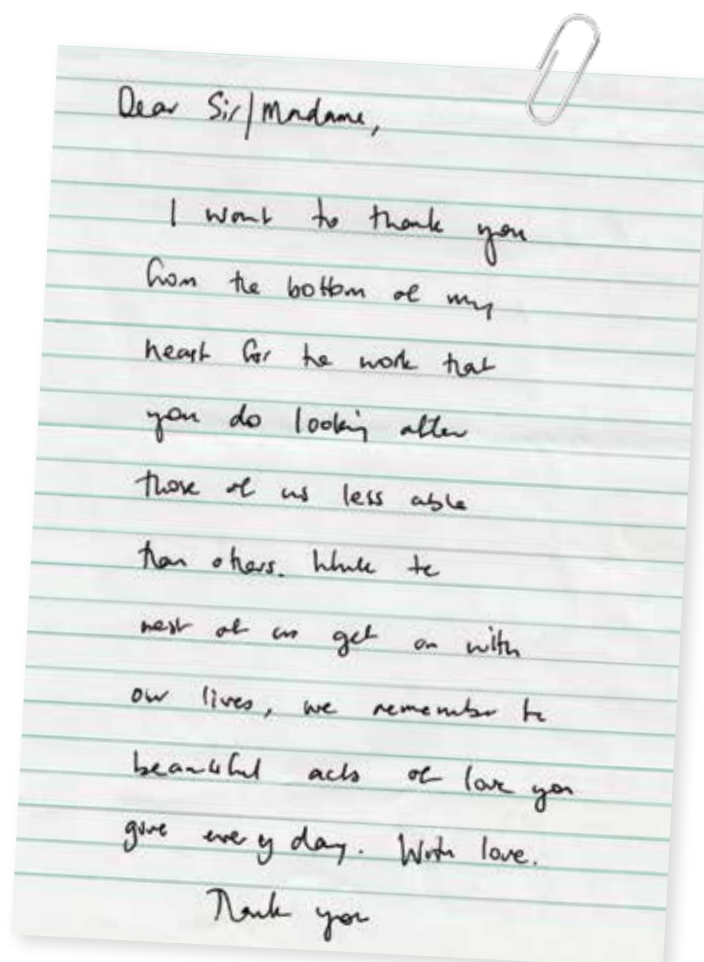 Dear Sir/Madame,
I want to thank you
from the bottom of my
heart for the work that
you do looking after
those of us less able
than others. While the
rest of us get on with
our lives, we remember the
beautiful acts of love you
give every day. With love.
Thank you